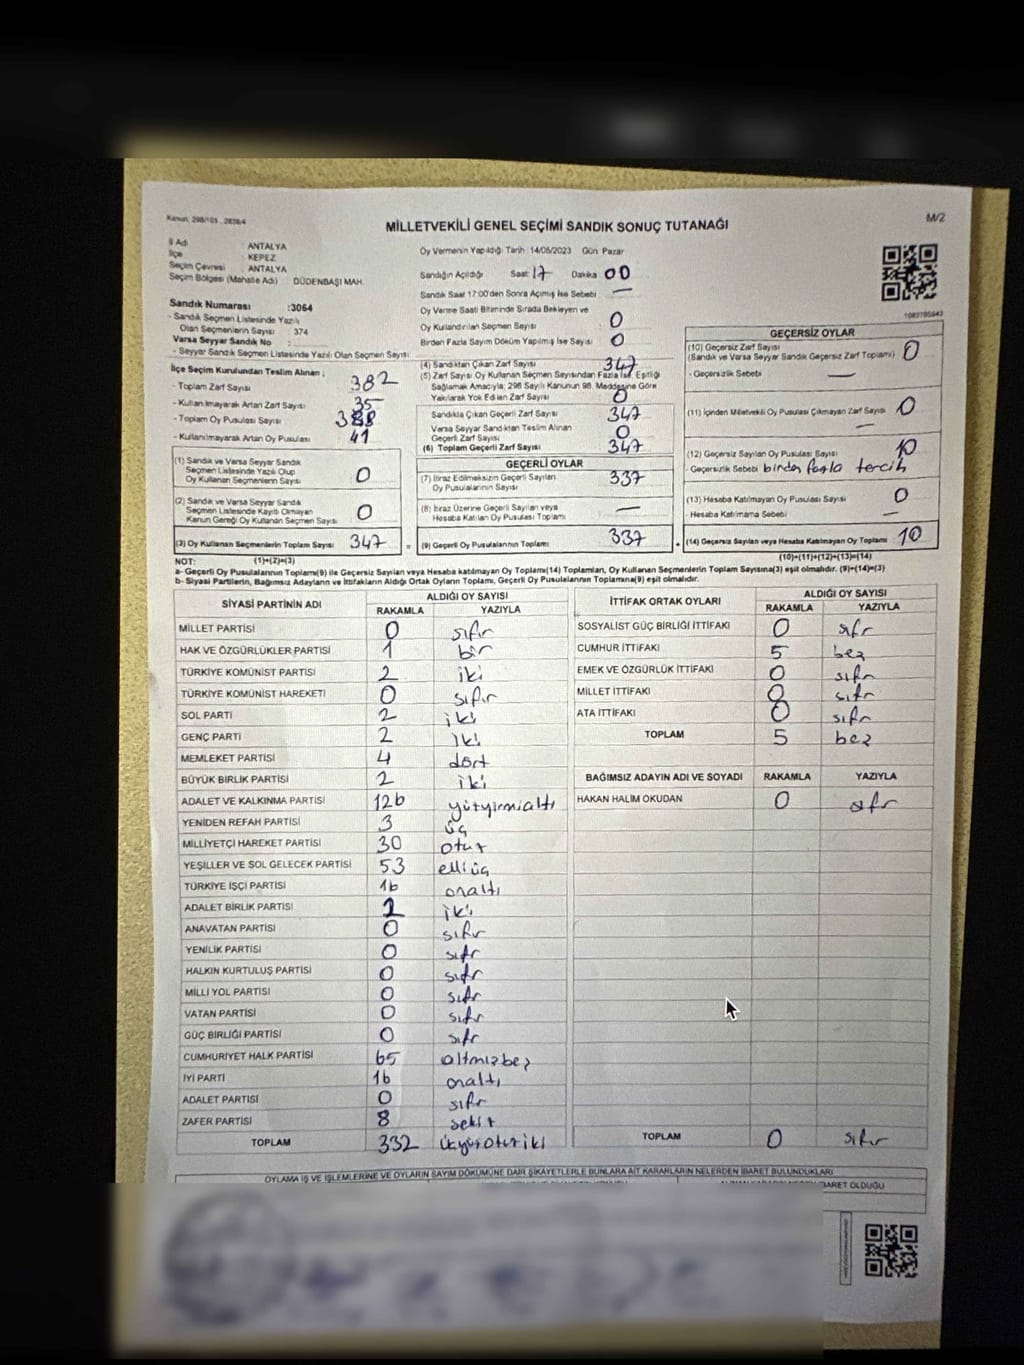 Kanun: 298/105 , 2839/4
M/2
MİLLETVEKİLİ GENEL SEÇİMİ SANDIK SONUÇ TUTANAĞI
İl Adı : ANTALYA
İlçe : KEPEZ
Seçim Çevresi : ANTALYA
Seçim Bölgesi (Mahalle Adı) : DÜDENBAŞI MAH.
Oy Vermenin Yapıldığı Tarih :14/05/2023 Gün Pazar
Sandığın Açıldığı Saat 17 Dakika 00
Sandık Saat 17:00'den Sonra Açımış İse Sebebi —
Sandık Numarası :3064
- Sandık Seçmen Listesinde Yazılı
Olan Seçmenlerin Sayısı : 374
Varsa Seyyar Sandık No :
- Seyyar Sandık Seçmen Listesinde Yazılı Olan Seçmen Sayısı
Oy Verme Saati Bitiminde Sırada Bekleyen ve
Oy Kullandırılan Seçmen Sayısı 0
Birden Fazla Sayım Döküm Yapılmış İse Sayısı 0
1083785643
İlçe Seçim Kurulundan Teslim Alınan ;
- Toplam Zarf Sayısı 382
- Kullanılmayarak Artan Zarf Sayısı 35
- Toplam Oy Pusulası Sayısı 388
- Kullanılmayarak Artan Oy Pusulası 41
(1) Sandık ve Varsa Seyyar Sandık
Seçmen Listesinde Yazılı Olup
Oy Kullanan Seçmenlerin Sayısı 0
(2) Sandık ve Varsa Seyyar Sandık
Seçmen Listesinde Kayıtlı Olmayan
Kanun Gereği Oy Kullanan Seçmen Sayısı 0
(3) Oy Kullanan Seçmenlerin Toplam Sayısı 347
(1)+(2)=(3)
(4) Sandıktan Çıkan Zarf Sayısı 347
(5) Zarf Sayısı Oy Kullanan Seçmen Sayısından Fazla İse, Eşitliği
Sağlamak Amacıyla; 298 Sayılı Kanunun 98. Maddesine Göre
Yakılarak Yok Edilen Zarf Sayısı 0
Sandıkta Çıkan Geçerli Zarf Sayısı 347
Varsa Seyyar Sandıktan Teslim Alınan
Geçerli Zarf Sayısı 0
(6) Toplam Geçerli Zarf Sayısı 347
GEÇERLİ OYLAR
(7) İtiraz Edilmeksizin Geçerli Sayılan
Oy Pusulalarının Sayısı 337
(8) İtiraz Üzerine Geçerli Sayılan veya
Hesaba Katılan Oy Pusulası Toplamı —
= (9) Geçerli Oy Pusulalarının Toplamı 337
GEÇERSİZ OYLAR
(10) Geçersiz Zarf Sayısı
(Sandık ve Varsa Seyyar Sandık Geçersiz Zarf Toplamı) 0
- Geçersizlik Sebebi —
(11) İçinden Milletvekili Oy Pusulası Çıkmayan Zarf Sayısı 0
—
(12) Geçersiz Sayılan Oy Pusulası Sayısı 10
- Geçersizlik Sebebi birden fazla tercih
(13) Hesaba Katılmayan Oy Pusulası Sayısı 0
- Hesaba Katılmama Sebebi —
+ (14) Geçersiz Sayılan veya Hesaba Katılmayan Oy Toplamı 10
(10)+(11)+(12)+(13)=(14)
NOT:
a- Geçerli Oy Pusulalarının Toplamı(9) ile Geçersiz Sayılan veya Hesaba katılmayan Oy Toplamı(14) Toplamları, Oy Kullanan Seçmenlerin Toplam Sayısına(3) eşit olmalıdır. (9)+(14)=(3)
b- Siyasi Partilerin, Bağımsız Adayların ve İttifakların Aldığı Ortak Oyların Toplamı, Geçerli Oy Pusulalarının Toplamına(9) eşit olmalıdır.
SİYASİ PARTİNİN ADI ALDIĞI OY SAYISI
RAKAMLA YAZIYLA
MİLLET PARTİSİ 0 sıfır
HAK VE ÖZGÜRLÜKLER PARTİSİ 1 bir
TÜRKİYE KOMÜNİST PARTİSİ 2 iki
TÜRKİYE KOMÜNİST HAREKETİ 0 sıfır
SOL PARTİ 2 iki
GENÇ PARTİ 2 iki
MEMLEKET PARTİSİ 4 dört
BÜYÜK BİRLİK PARTİSİ 2 iki
ADALET VE KALKINMA PARTİSİ 126 yüzyirmialtı
YENİDEN REFAH PARTİSİ 3 üç
MİLLİYETÇİ HAREKET PARTİSİ 30 otuz
YEŞİLLER VE SOL GELECEK PARTİSİ 53 elliüç
TÜRKİYE İŞÇİ PARTİSİ 16 onaltı
ADALET BİRLİK PARTİSİ 2 iki
ANAVATAN PARTİSİ 0 sıfır
YENİLİK PARTİSİ 0 sıfır
HALKIN KURTULUŞ PARTİSİ 0 sıfır
MİLLİ YOL PARTİSİ 0 sıfır
VATAN PARTİSİ 0 sıfır
GÜÇ BİRLİĞİ PARTİSİ 0 sıfır
CUMHURİYET HALK PARTİSİ 65 altmışbeş
İYİ PARTİ 16 onaltı
ADALET PARTİSİ 0 sıfır
ZAFER PARTİSİ 8 sekiz
TOPLAM 332 üçyüzotuziki
İTTİFAK ORTAK OYLARI ALDIĞI OY SAYISI
RAKAMLA YAZIYLA
SOSYALİST GÜÇ BİRLİĞİ İTTİFAKI 0 sıfır
CUMHUR İTTİFAKI 5 beş
EMEK VE ÖZGÜRLÜK İTTİFAKI 0 sıfır
MİLLET İTTİFAKI 0 sıfır
ATA İTTİFAKI 0 sıfır
TOPLAM 5 beş
BAĞIMSIZ ADAYIN ADI VE SOYADI RAKAMLA YAZIYLA
HAKAN HALİM OKUDAN 0 sıfır
TOPLAM 0 sıfır
OYLAMA İŞ VE İŞLEMLERİNE VE OYLARIN SAYIM DÖKÜMÜNE DAİR ŞİKAYETLERLE BUNLARA AİT KARARLARIN NELERDEN İBARET BULUNDUKLARI
İBARET OLDUĞU